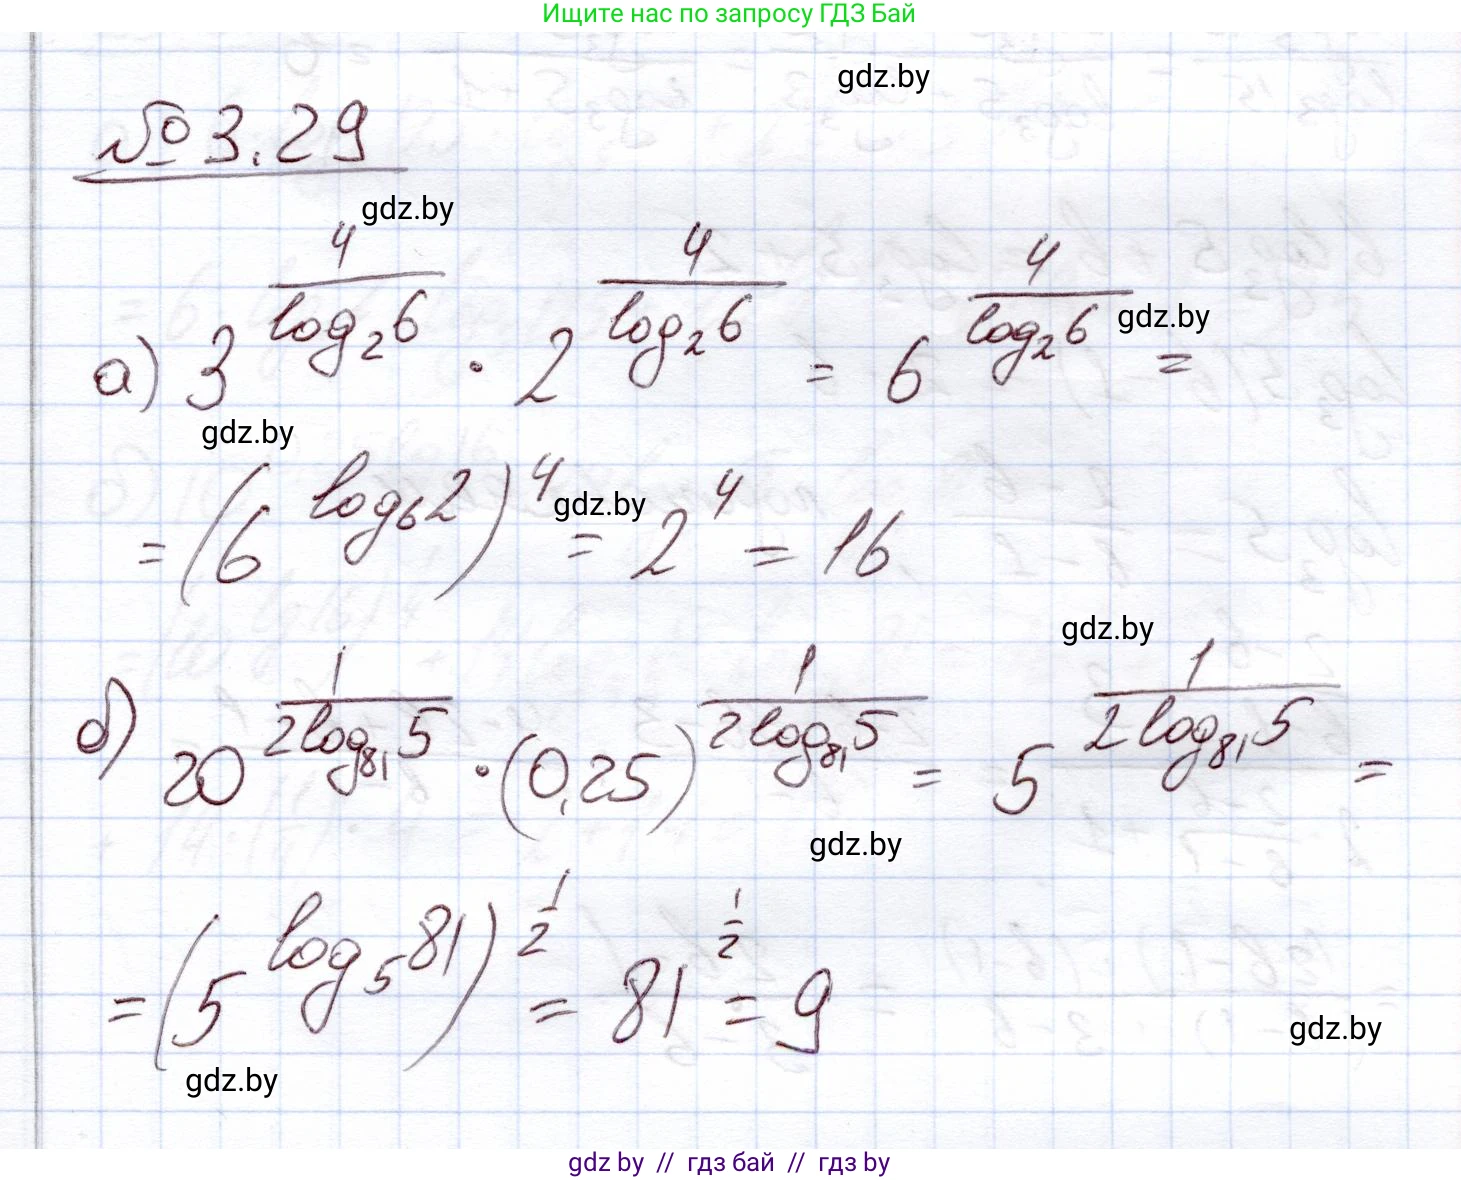 Ищите нас по запросу ГДЗ Бай
gdz.by
№ 3.29
gdz.by
а) 3^(4/log₂6) · 2^(4/log₂6) = 6^(4/log₂6) =
gdz.by
gdz.by
= (6^(log₆2))^4 = 2^4 = 16
gdz.by
gdz.by
б) 20^(1/(2log₈₁5)) · (0,25)^(1/(2log₈₁5)) = 5^(1/(2log₈₁5)) =
gdz.by
= (5^(log₅81))^(1/2) = 81^(1/2) = 9
gdz.by
gdz.by
gdz by // гдз бай // гдз by